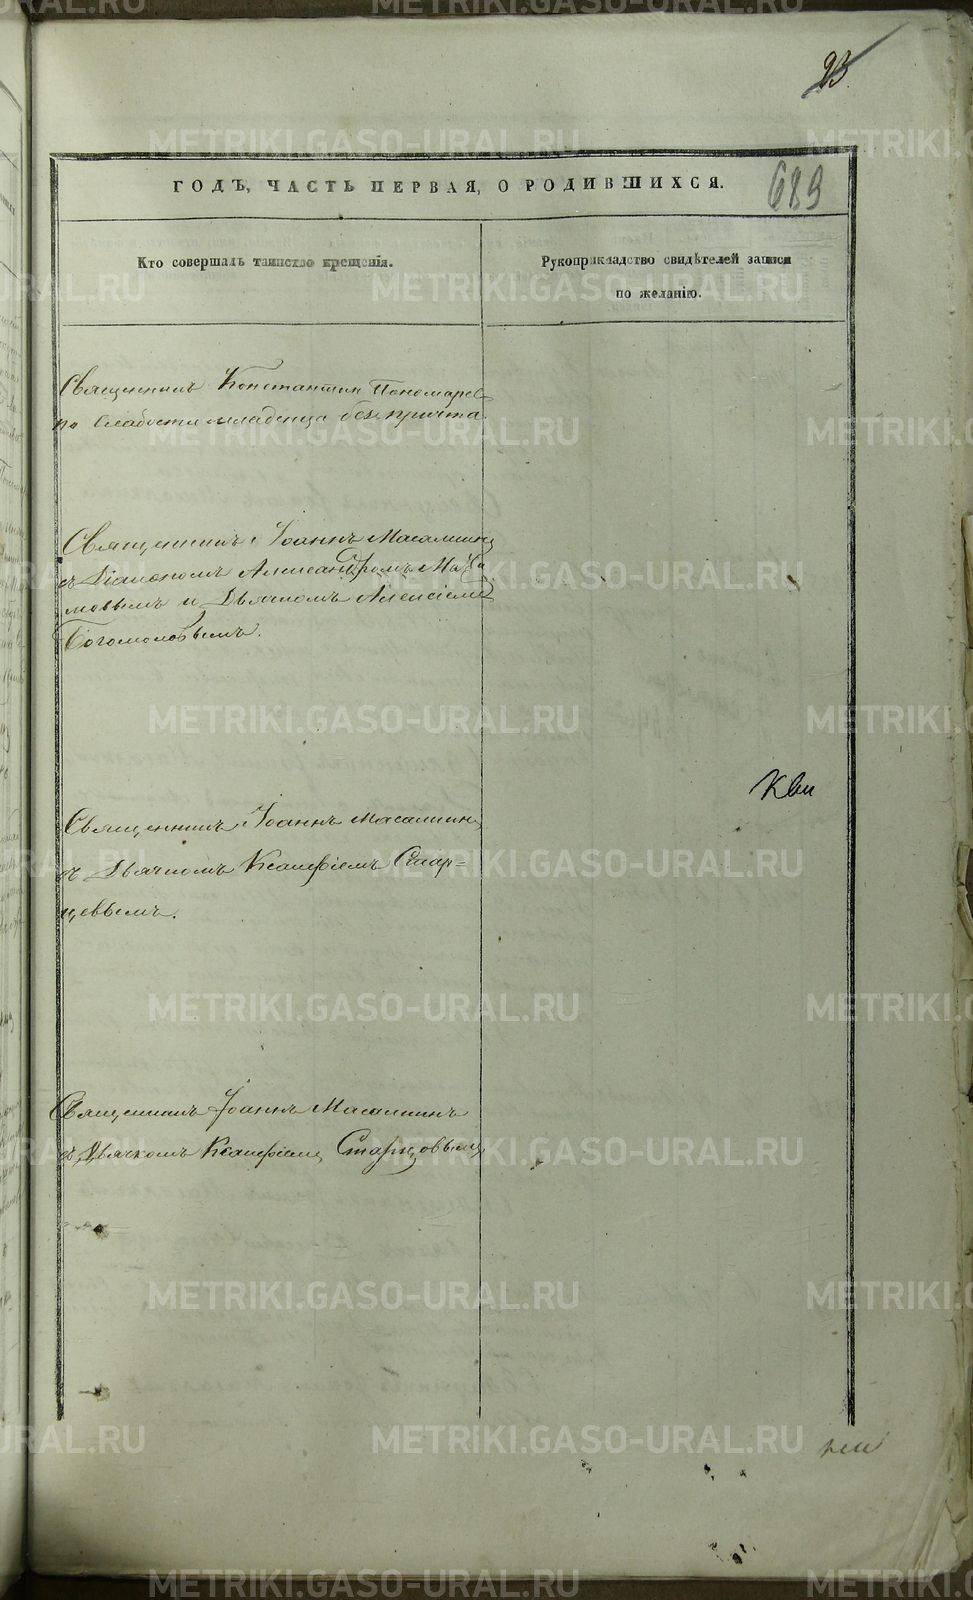 23
ГОДЪ, ЧАСТЬ ПЕРВАЯ, О РОДИВШИХСЯ.
689
Кто совершалъ таинство крещенія.
Рукоприкладство свидѣтелей записи
по желанію.
Священникъ Константин Пономарев
по слабости младенца без причта.
Священникъ Іоаннъ Масалкинъ
съ Діакономъ Александромъ
мовымъ и Дьячкомъ Алексіемъ
Богомоловымъ.
Священникъ Іоаннъ Масалкинъ
съ Дьячкомъ Ксанфіемъ Стар=
цевымъ.
Священникъ Іоаннъ Масалкинъ
съ Дьячкомъ Ксанфіемъ Старцовымъ
METRIKI.GASO-URAL.RU